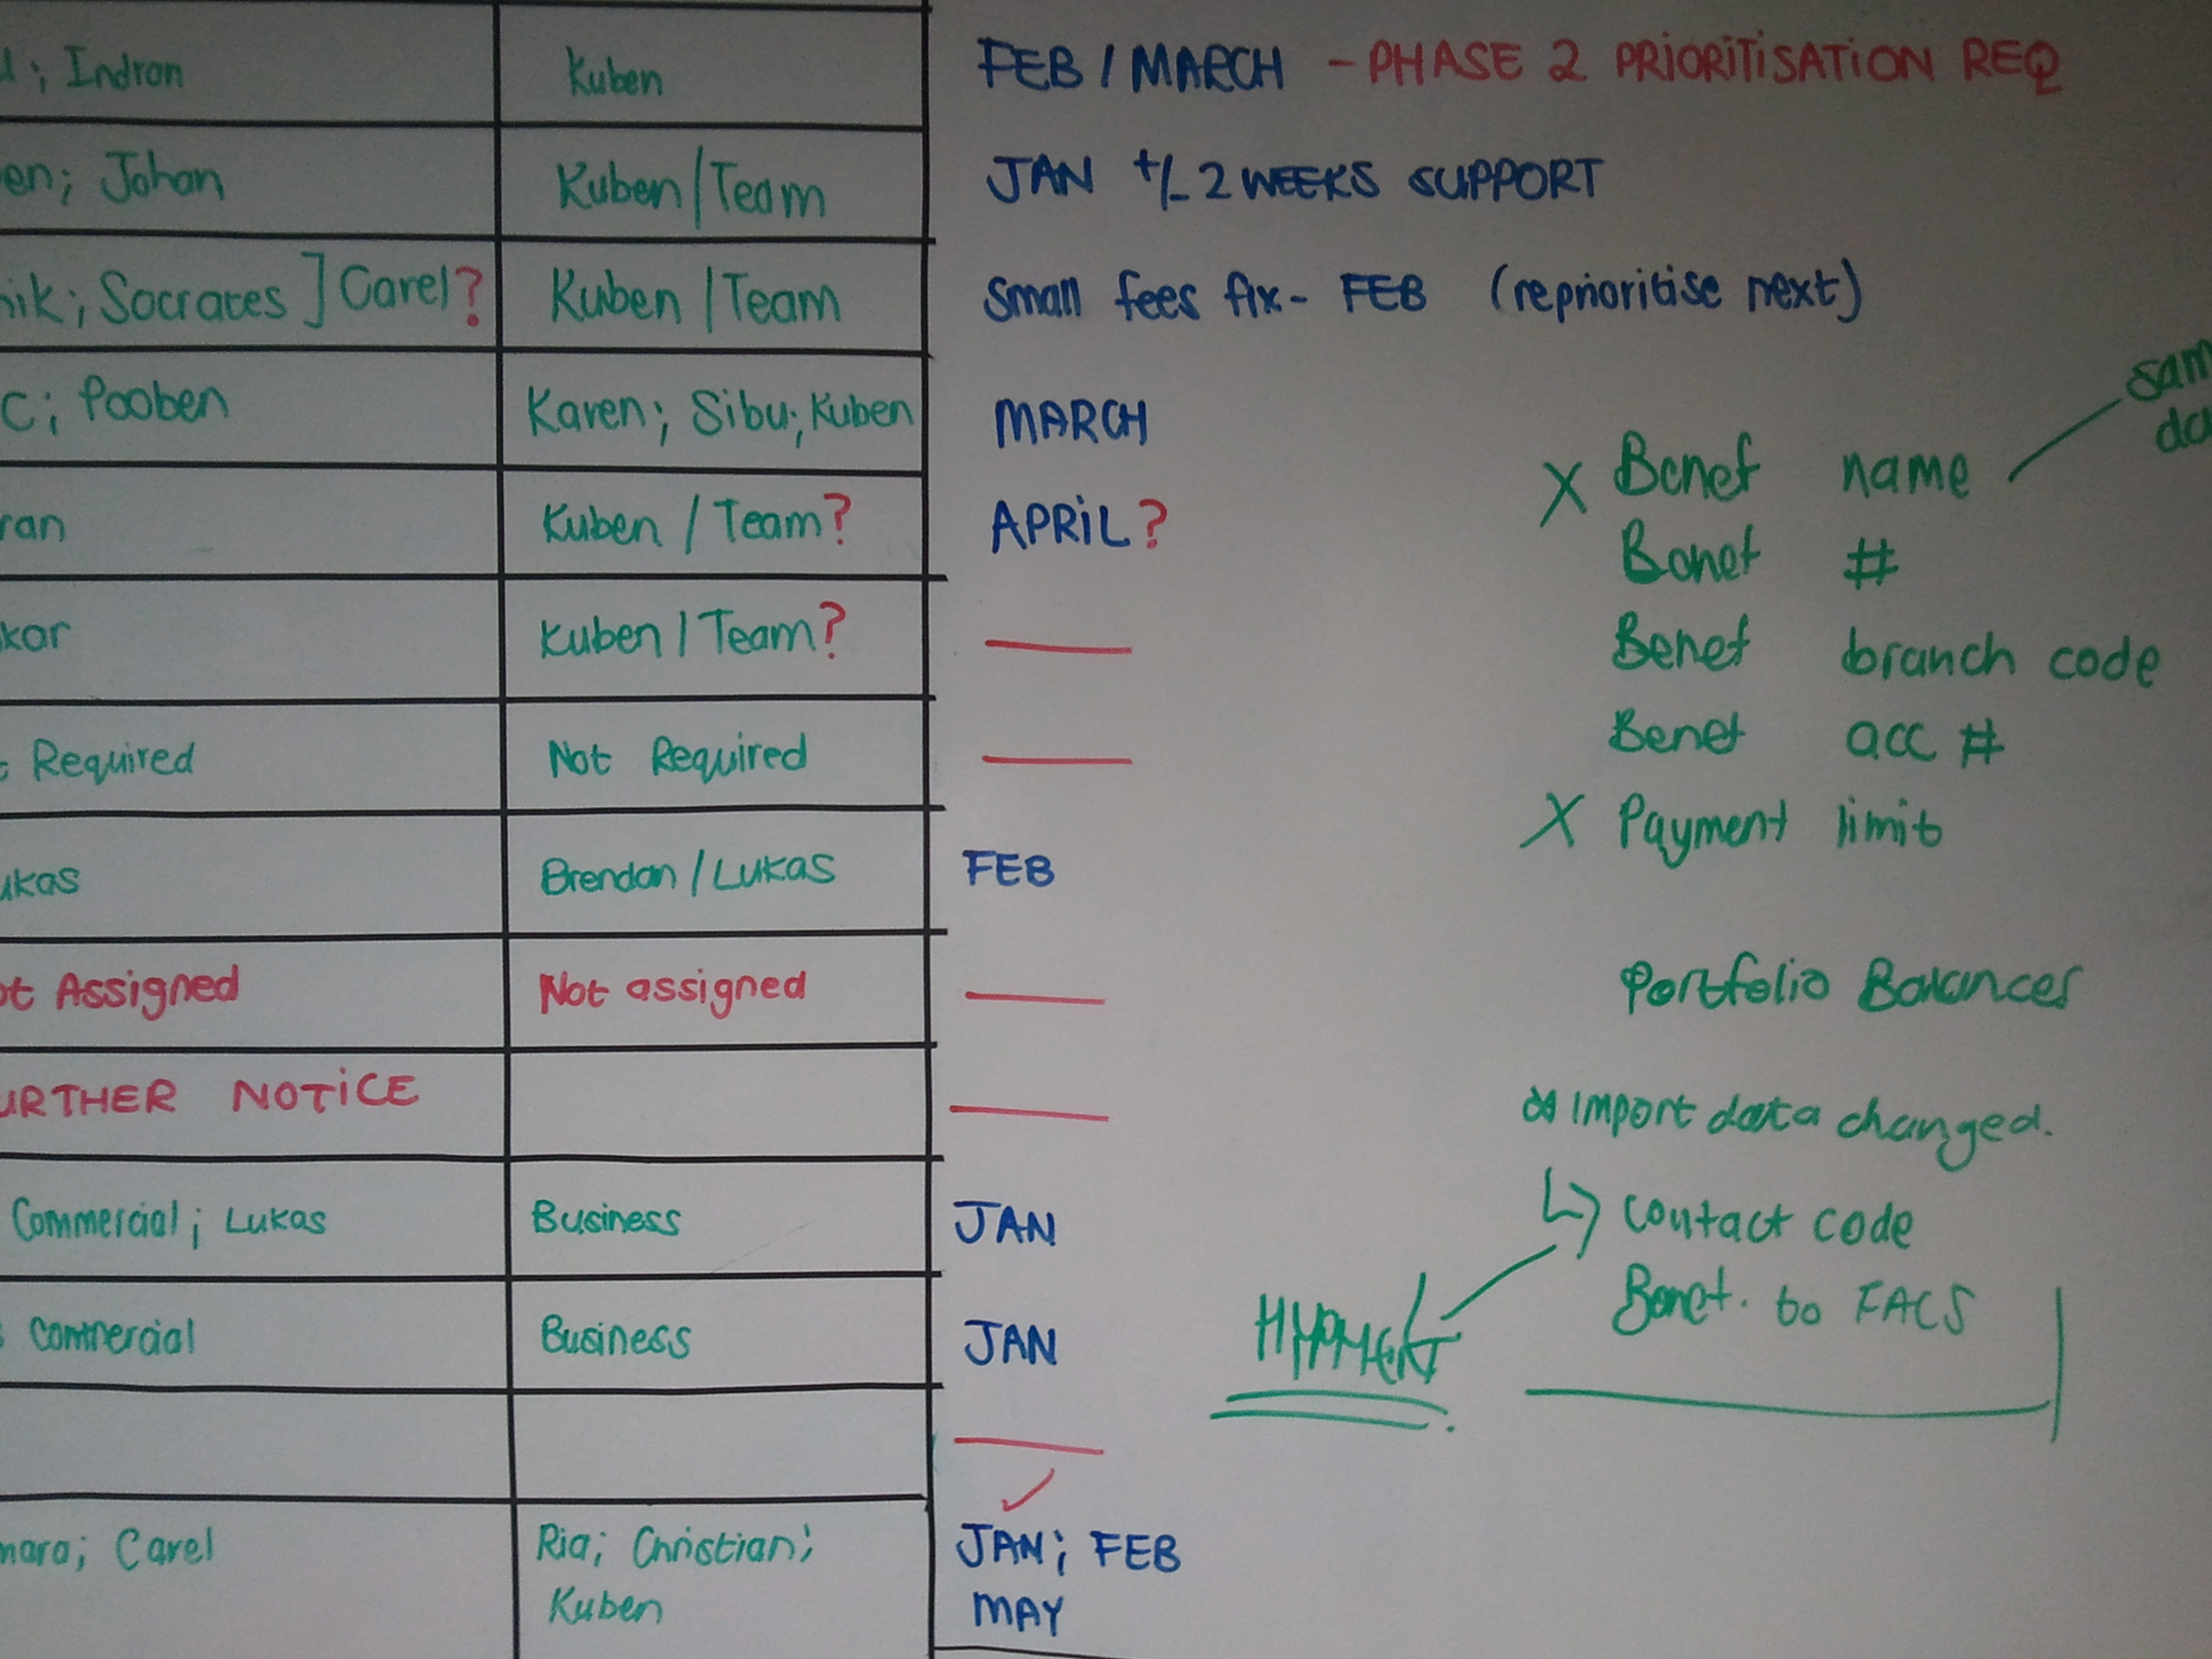 ; Indran Kuben FEB / MARCH - PHASE 2 PRIORITISATION REQ
en; Johan Kuben/Team JAN +/- 2 WEEKS SUPPORT
nik; Socrates ] Carel? Kuben / Team Small fees fix - FEB (reprioritise next)
C; Pooben Karen; Sibu; Kuben MARCH
ran Kuben / Team? APRIL?
kar Kuben / Team?
Required Not Required
ukas Brendan / LUKAS FEB
ot Assigned Not assigned
URTHER NOTICE
Commercial; Lukas Business JAN
Commercial Business JAN
mara; Carel Ria; Christian; JAN; FEB
Kuben MAY
sam
da
X Benef name
Benef #
Benef branch code
Benef acc #
X Payment limit
Portfolio Balances
import data changed.
Contact code
Benef. to FACS